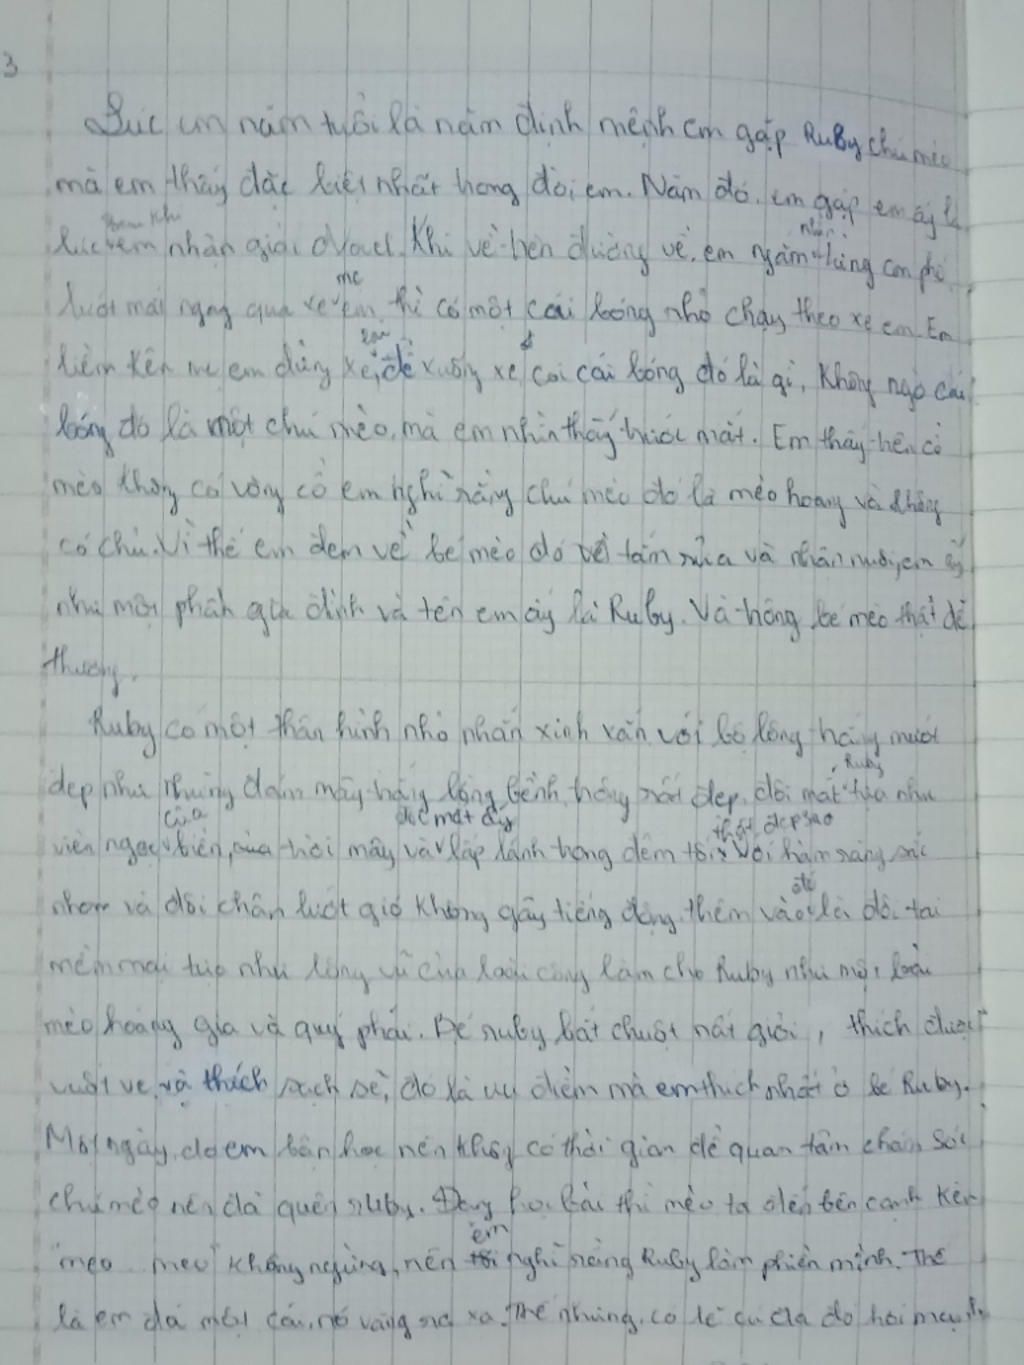 3
Lúc em năm tuổi là năm định mệnh em gặp Ruby chú mèo
mà em thấy đặc biệt nhất trong đời em. Năm đó, em gặp em ấy là
sau khi nhìn
lúc em nhận giải Novel. Khi về trên đường về, em ngắm từng con phố
mẹ
lướt mái ngang qua xe em thì có một cái bóng nhỏ chạy theo xe em. Em
lại để
liền kêu mẹ em dừng xe, để xuống xe coi cái bóng đó là gì, Không ngờ cái
bóng đó là một chú mèo, mà em nhìn thấy trước mắt. Em thấy trên cổ
mèo không có vòng cổ em nghĩ rằng chú mèo đó là mèo hoang và không
có chủ. Vì thế em đem về bé mèo đó về tắm rửa và nhận nuôi, em ấy
như một phần gia đình và tên em ấy là Ruby. Và trông bé mèo thật dễ
thương.
Ruby có một thân hình nhỏ nhắn xinh xắn với bộ lông trắng mướt
Ruby
đẹp như những đám mây trắng lông bềnh trông rất đẹp, đôi mắt tựa như
của đôi mắt ấy thật đẹp sao
viên ngọc biển, của trời mây và lấp lánh trong đêm tối với hàm răng sắc
đó
nhọn và đôi chân lướt gió không gây tiếng động, thêm vào là đôi tai
mềm mại tựa như lông vũ của loài công làm cho Ruby như một loài
mèo hoàng gia và quý phái. Bé ruby bắt chuột rất giỏi, thích được
vuốt ve, và thích sạch sẽ, đó là ưu điểm mà em thích nhất ở bé Ruby.
Một ngày, do em bận học nên không có thời gian để quan tâm chăm sóc
chú mèo nên đã quên ruby. Đang học bài thì mèo ta đến bên cạnh kêu
em
"meo meo" không ngừng, nên tôi nghĩ rằng Ruby làm phiền mình. Thế
là em đá một cái, nó văng ra xa. Thế nhưng, có lẽ cú đá đó hơi mạnh